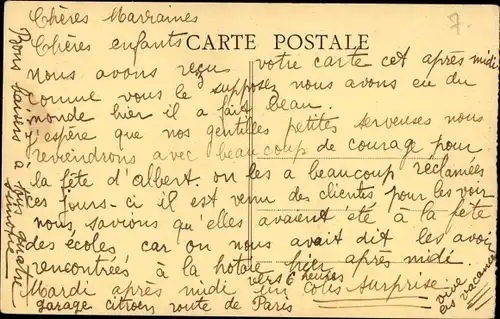 7.
Chères Marraines
Chères enfants
CARTE POSTALE
nous avons reçu votre carte cet après midi
comme vous le supposez nous avons eu du
monde hier il a fait beau.
j'espère que nos gentilles petites serveuses nous
reviendrons avec beaucoup de courage pour
la fête d'albert. on les a beaucoup réclamées
ces jours-ci il est venu des clientes pour les voir
nous, savions qu'elles avaient été à la fête
des écoles car on nous avait dit les avoir
rencontrées à la hier après midi.
Mardi après midi vers 6 heures un colis surprise
garage citroen route de Paris
vive les vacances
Bons baisers à tous quatre